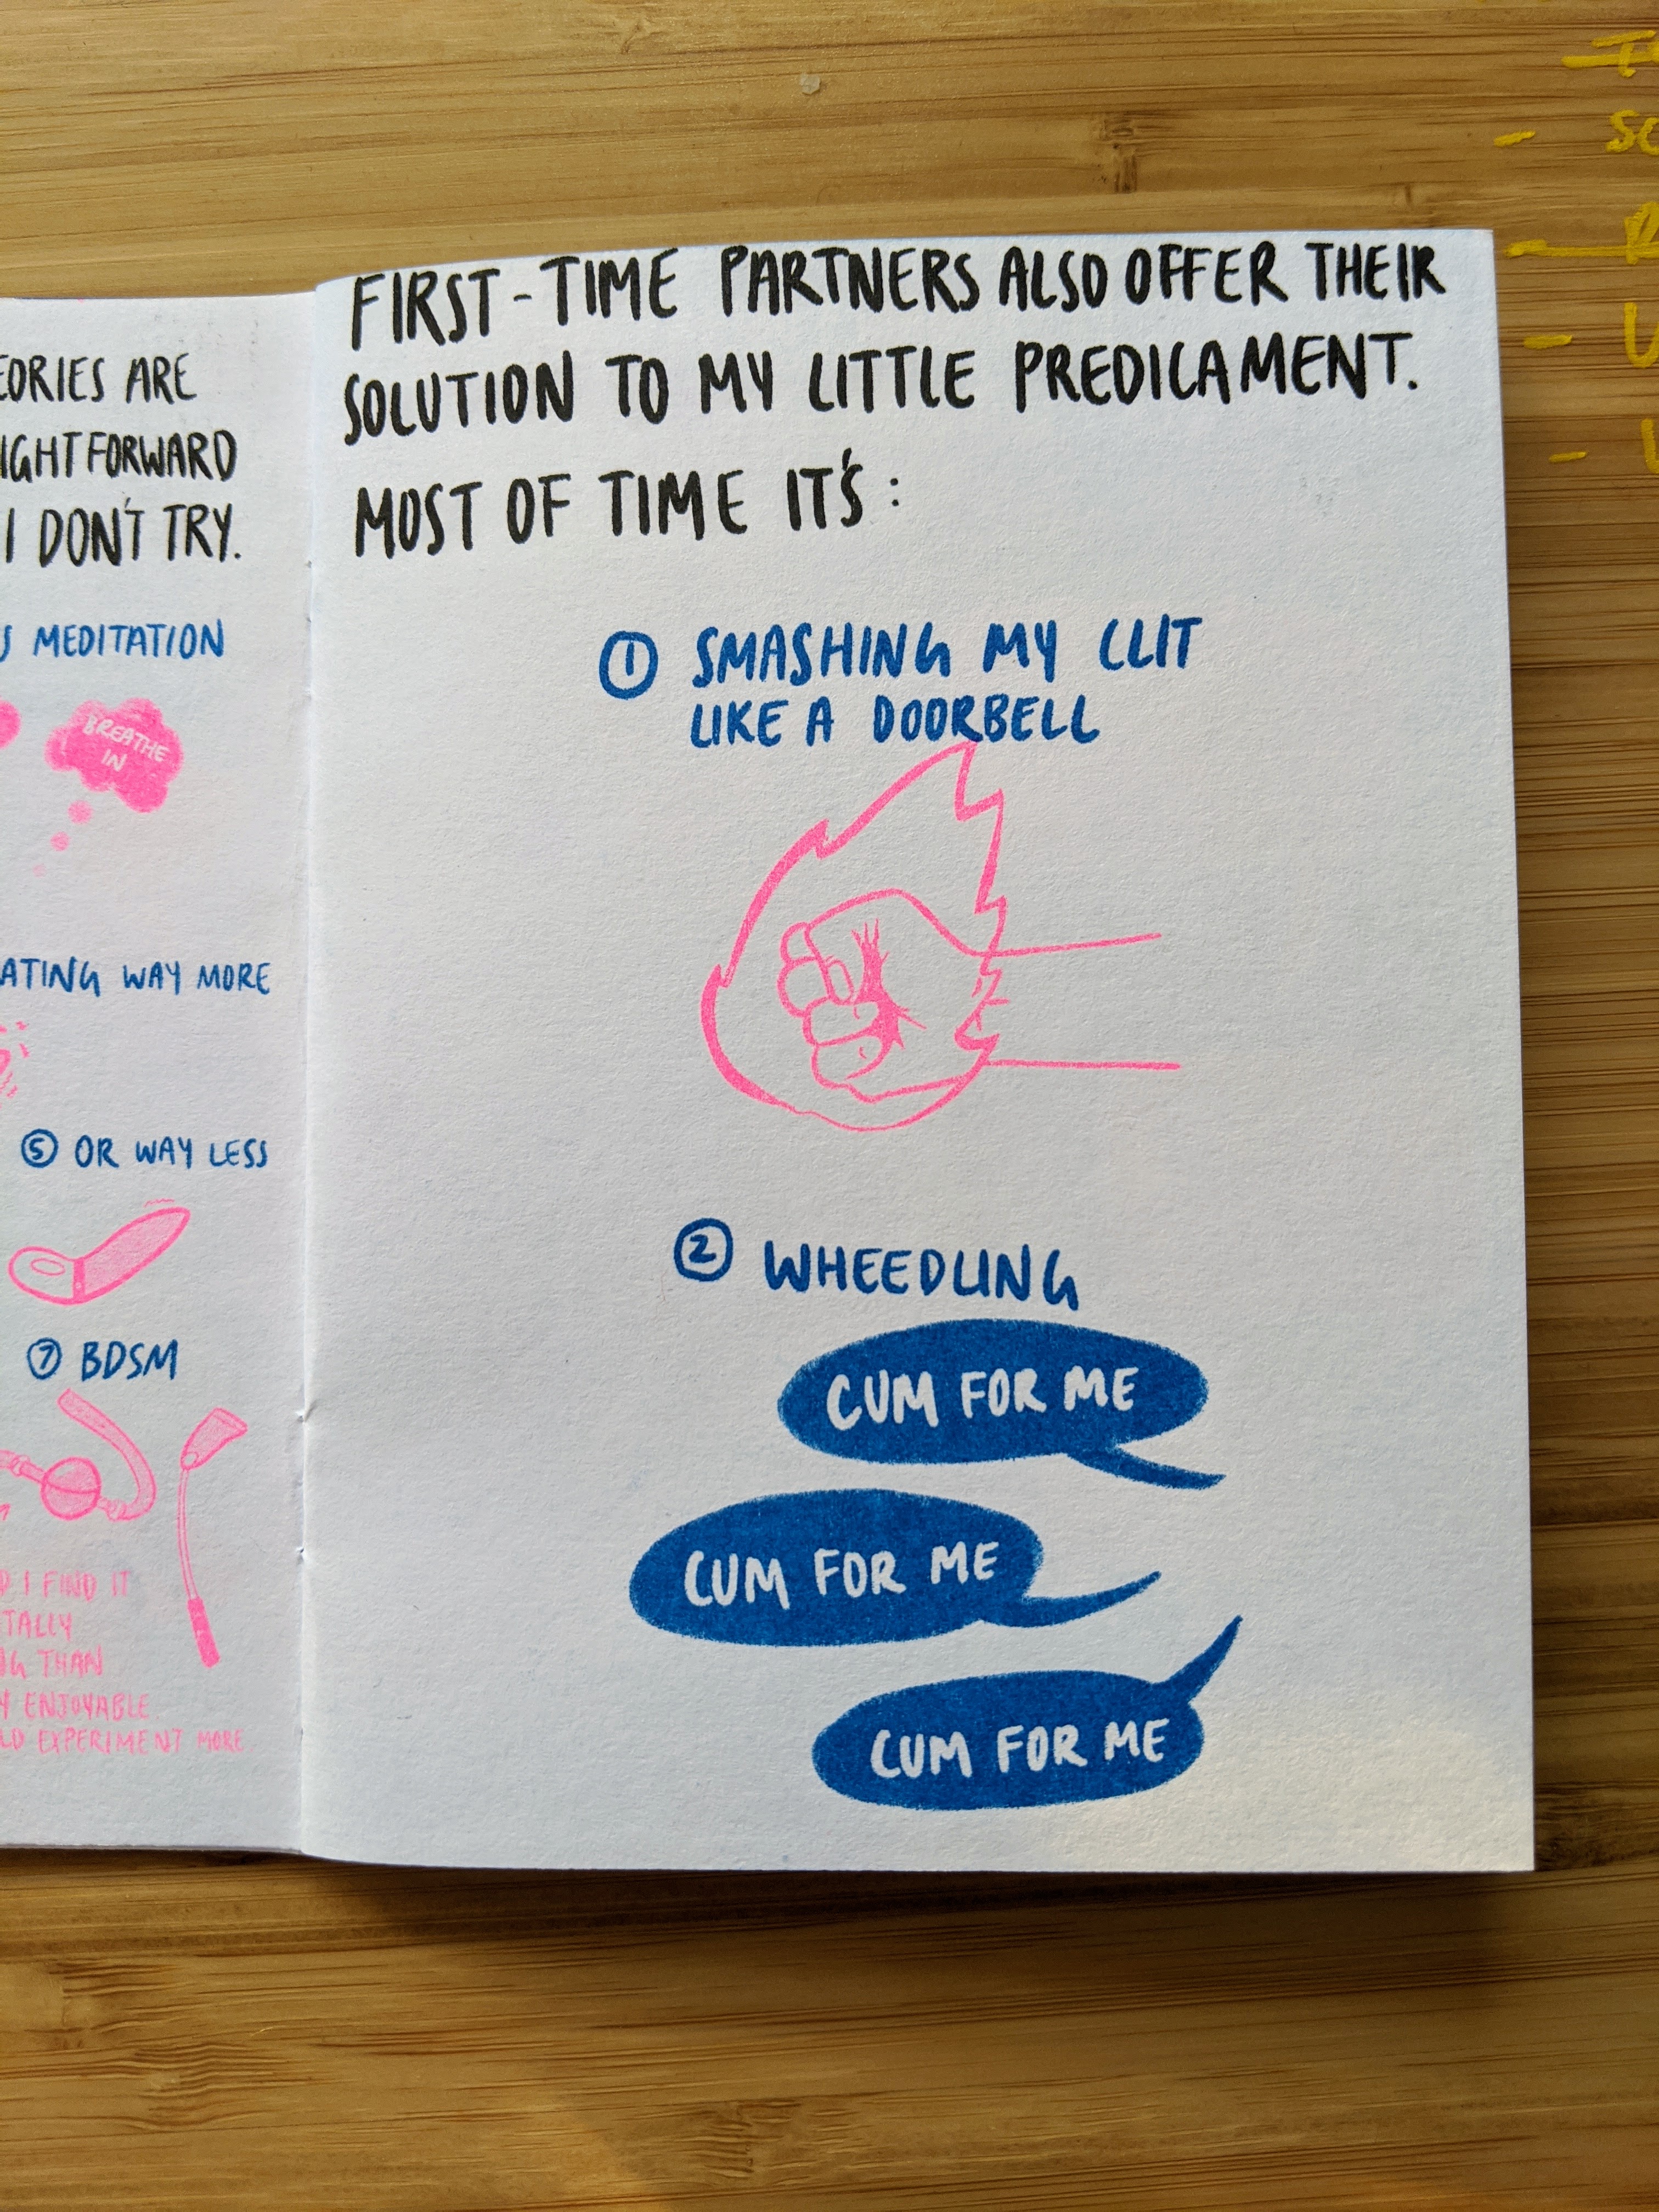 ARE
I DON'T TRY.
MEDITATION
BREATHE
IN
WAY MORE
⑤ OR WAY LESS
⑦ BDSM
I FIND IT
THAN
ENJOYABLE.
EXPERIMENT MORE
FIRST-TIME PARTNERS ALSO OFFER THEIR
SOLUTION TO MY LITTLE PREDICAMENT.
MOST OF TIME IT'S:
① SMASHING MY CLIT
LIKE A DOORBELL
② WHEEDLING
CUM FOR ME
CUM FOR ME
CUM FOR ME